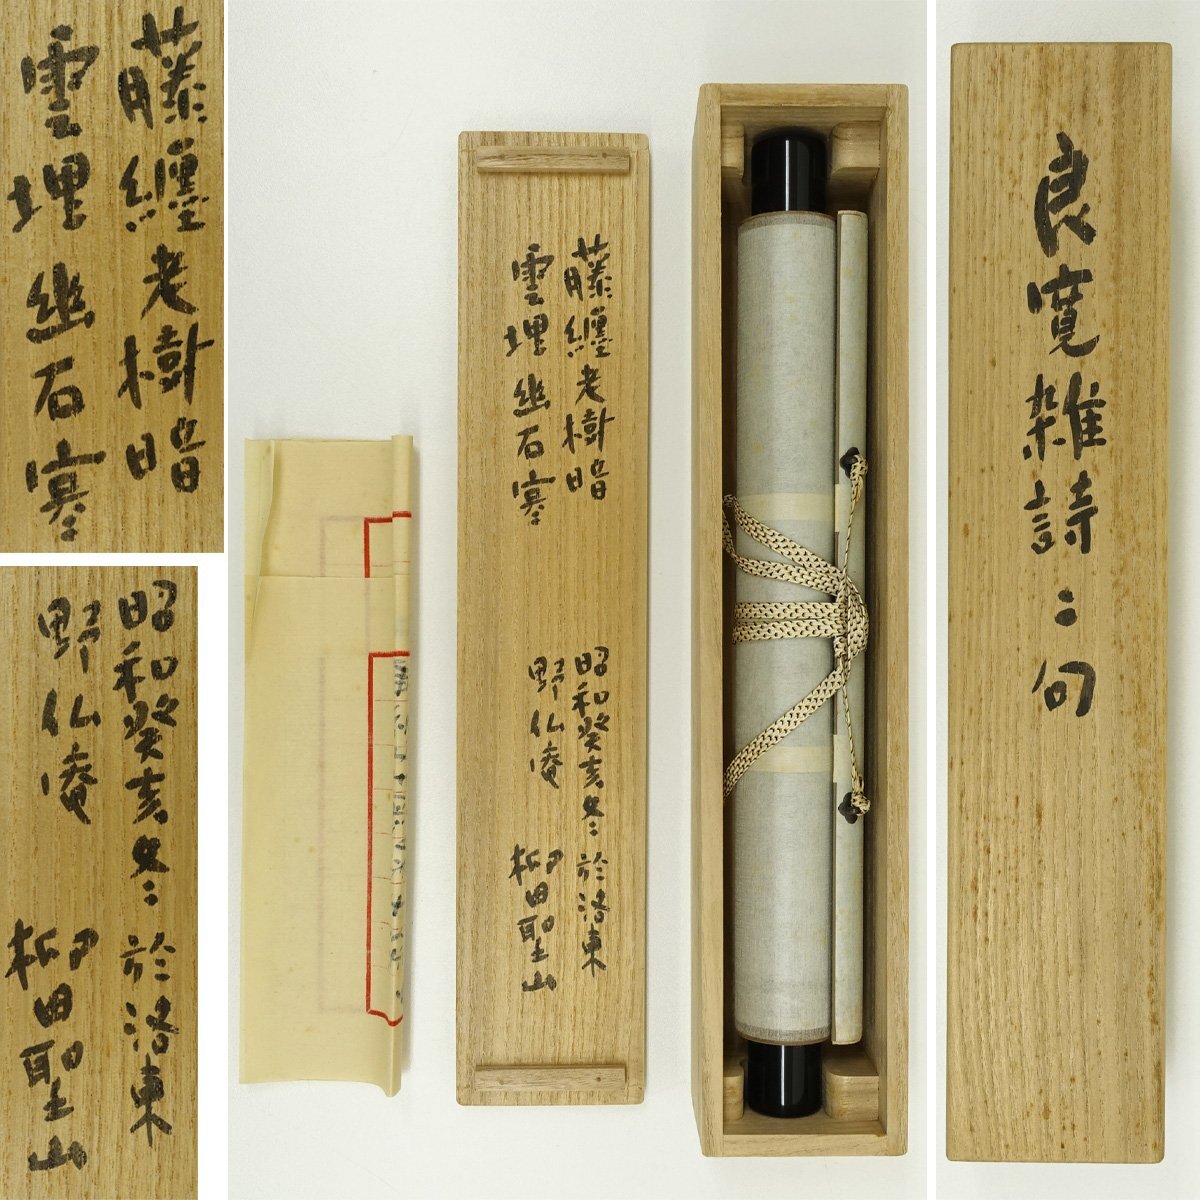 藤纏老樹暗
雲埋幽石寒
昭和癸亥冬於洛東
野仏庵
柳田聖山
藤纏老樹暗
雲埋幽石寒
昭和癸亥冬於洛東
野仏庵
柳田聖山
良寛雑詩二句